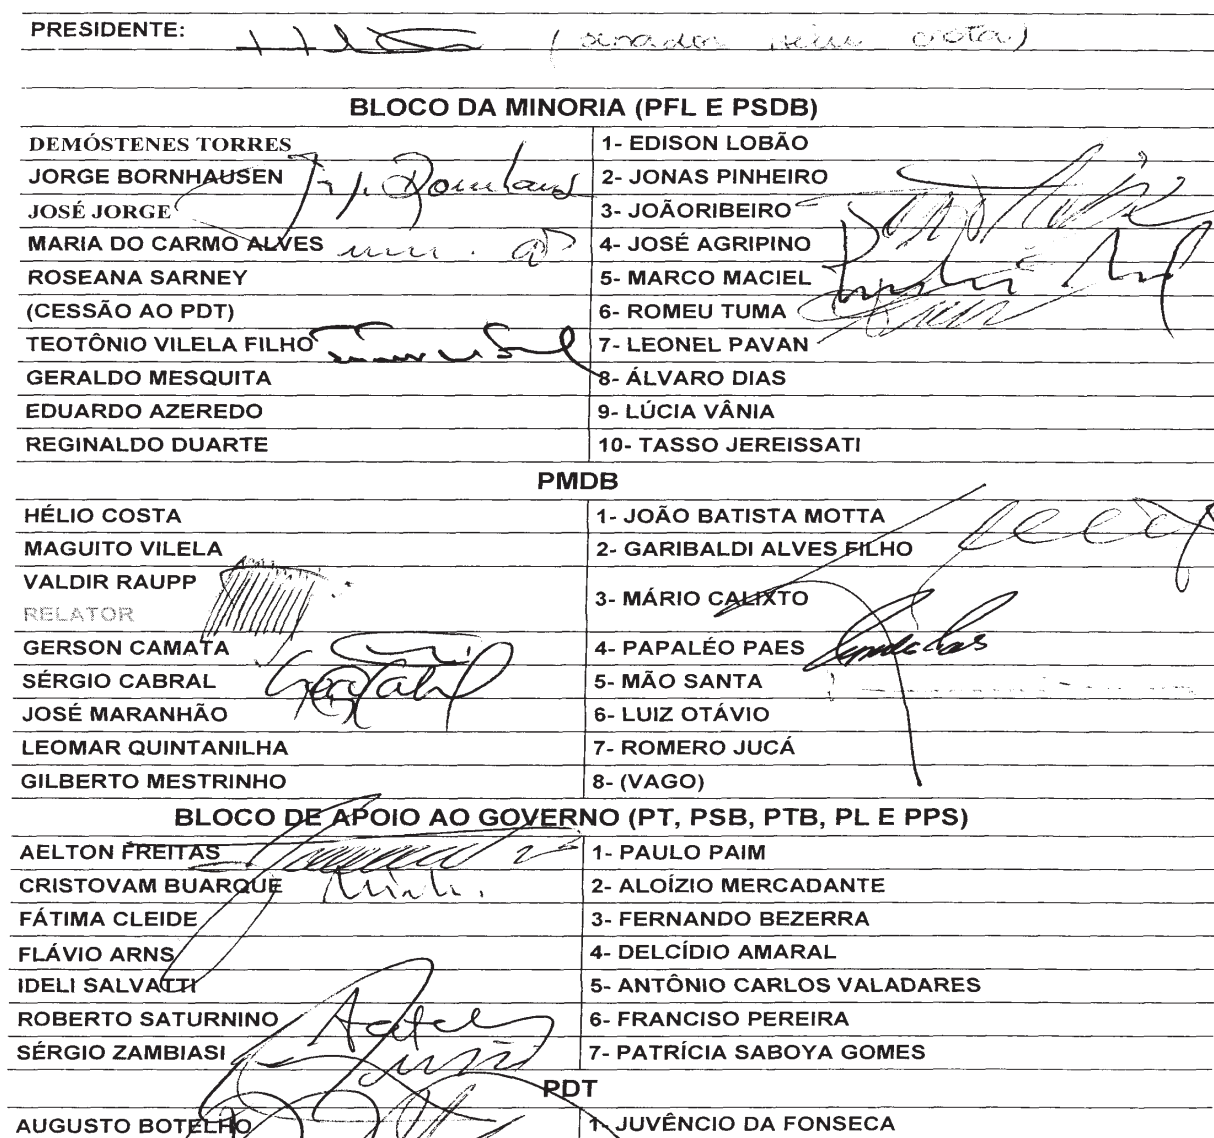 PRESIDENTE: (senador Hélio Costa)
BLOCO DA MINORIA (PFL E PSDB)
DEMÓSTENES TORRES 1- EDISON LOBÃO
JORGE BORNHAUSEN 2- JONAS PINHEIRO
JOSÉ JORGE 3- JOÃORIBEIRO
MARIA DO CARMO ALVES 4- JOSÉ AGRIPINO
ROSEANA SARNEY 5- MARCO MACIEL
(CESSÃO AO PDT) 6- ROMEU TUMA
TEOTÔNIO VILELA FILHO 7- LEONEL PAVAN
GERALDO MESQUITA 8- ÁLVARO DIAS
EDUARDO AZEREDO 9- LÚCIA VÂNIA
REGINALDO DUARTE 10- TASSO JEREISSATI
PMDB
HÉLIO COSTA 1- JOÃO BATISTA MOTTA
MAGUITO VILELA 2- GARIBALDI ALVES FILHO
VALDIR RAUPP 3- MÁRIO CALIXTO
RELATOR
GERSON CAMATA 4- PAPALÉO PAES
SÉRGIO CABRAL 5- MÃO SANTA
JOSÉ MARANHÃO 6- LUIZ OTÁVIO
LEOMAR QUINTANILHA 7- ROMERO JUCÁ
GILBERTO MESTRINHO 8- (VAGO)
BLOCO DE APOIO AO GOVERNO (PT, PSB, PTB, PL E PPS)
AELTON FREITAS 1- PAULO PAIM
CRISTOVAM BUARQUE 2- ALOÍZIO MERCADANTE
FÁTIMA CLEIDE 3- FERNANDO BEZERRA
FLÁVIO ARNS 4- DELCÍDIO AMARAL
IDELI SALVATTI 5- ANTÔNIO CARLOS VALADARES
ROBERTO SATURNINO 6- FRANCISO PEREIRA
SÉRGIO ZAMBIASI 7- PATRÍCIA SABOYA GOMES
PDT
AUGUSTO BOTELHO 1- JUVÊNCIO DA FONSECA